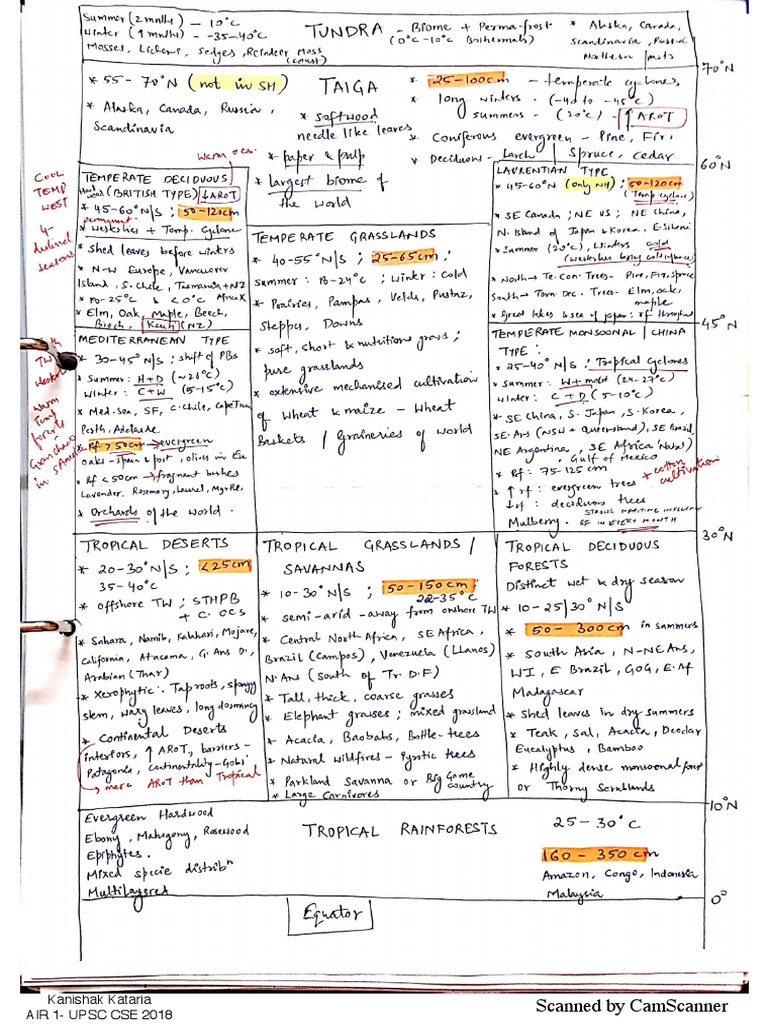 Summer (2 mnths) — 10°C
Winter (9 mnths) - -35-40°C
Mosses, Lichens, Sedges, Reindeer Moss
(coast)
TUNDRA - Biome + Perma-frost
(0°C -10°C Isothermals)
* Alaska, Canada,
Scandinavia, Russia
Northern parts
70°N
* 55 - 70°N (not in SH)
* Alaska, Canada, Russia,
Scandinavia
TAIGA
* softwood
needle like leaves
* paper & pulp
* largest biome of
the world
* 25-100cm — temperate cyclones
* long winters. (-40 to -45°C)
summers - (20°C) - ↑AROT
* Coniferous evergreen - Pine, Fir,
Spruce, Cedar
* Deciduous - Larch
60°N
Warm ocs.
COOL
TEMP
WEST
4-
defined
seasons
TEMPERATE DECIDUOUS
Hard wood (BRITISH TYPE) ↓AROT
* 45-60°N/S ; 50-120cm
permanent
* Westerlies + Temp. Cyclone
* Shed leaves before winters
* N-W Europe, Vancouver
Island, S. Chile, Tasmania + NZ
* 10-25°C & <0°C
* Elm, Oak, Maple, Beech,
Birch, Kauri (NZ)
TEMPERATE GRASSLANDS
* 40-55°N/S ; 25-65cm ;
summer: 18-24°C ; winter: cold
* Prairies, Pampas, Velds, Pustaz,
Steppes, Downs
* soft, short & nutritious grass ;
pure grasslands
* extensive mechanised cultivation
of wheat & maize - Wheat
Baskets / Graineries of world
LAURENTIAN TYPE
* 45-60°N (only NH) ; 50-120cm
(Temp cyclone)
* SE Canada ; NE US ; NE China,
N. Island of Japan & Korea, E. Siberia
* Summer (20°C), Winters cold
(Westerlies bring cold influence)
* North → Te. Con. Trees - Pine, Fir, Spruce
South → Tem. Dec. Trees - Elm, oak,
maple
* Great lakes & sea of japan : rf throughout
45°N
MEDITERRANEAN TYPE
* 30-45°N/S ; shift of PBs
* Summer : H+D (~26°C)
Winter : C+W (5-15°C)
* Med. Sea, SF, C. Chile, Cape Town
Perth, Adelaide
* Rf >50cm → evergreen
oaks - Spain & Port, olives in Eu
* Rf <50cm → fragrant bushes
Lavender, Rosemary, Laurel, Myrtle,
* Orchards of the world.
TEMPLERATE MONSOONAL / CHINA
TYPE :
* 25-40°N/S ; Tropical Cyclones
* Summer : W+moist (24-27°C)
Winter : C+D (5-10°C)
* SE China, S. Japan, S. Korea,
SE Ars (NSW + Queensland), SE Brazil,
NE Argentina, SE Africa (Natal)
Gulf of Mexico
* Rf: 75-125 cm
+ cotton
cultivation
* ↑ rf : evergreen trees
↓ rf : deciduous trees
STRONG MARITIME INFLUENCE
Mulberry. RF IN EVERY MONTH
30°N
TROPICAL DESERTS
* 20-30°N/S ; <25cm
35-40°C
* offshore TW ; STHPB
+ C. OCS
* Sahara, Namib, Kalahari, Mojave,
California, Atacama, G. Aus D.,
Arabian (Thar)
* Xerophytic : Tap roots, spongy
stem, waxy leaves, long dormancy
* Continental Deserts
interiors, ↑ AROT, barriers-
Patagonia, continentality - Gobi
→ more AROT than Tropical
TROPICAL GRASSLANDS /
SAVANNAS
* 10-30°N/S ; 50-150cm ;
22-35°C
* semi-arid - away from onshore TW
* Central North Africa, SE Africa,
Brazil (Campos), Venezuela (Llanos)
N. Aus (South of Tr. D.F)
* Tall, thick, coarse grasses
* Elephant grasses ; mixed grassland
* Acacia, Baobabs, Bottle-trees
* Natural wildfires - Pyrotic trees
* Parkland Savanna or Big Game
country
* Large Carnivores
TROPICAL DECIDUOUS
FORESTS
Distinct wet & dry season
* 10-25/30°N/S
* 50-300cm in summers
* South Asia, N-NE Aus,
WI, E Brazil, GOG, E. Af
Madagascar
* Shed leaves in dry summers
* Teak, Sal, Acacia, Deodar
Eucalyptus, Bamboo
* Highly dense monsoonal forest
or Thorny Scrublands
10°N
Evergreen Hardwood
Ebony, Mahogony, Rosewood
Epiphytes.
Mixed specie distribn
Multilayered
TROPICAL RAINFORESTS
25-30°C
160-350cm
Amazon, Congo, Indonesia
Malaysia
0°
Equator
Kanishak Kataria
AIR 1- UPSC CSE 2018
Scanned by CamScanner